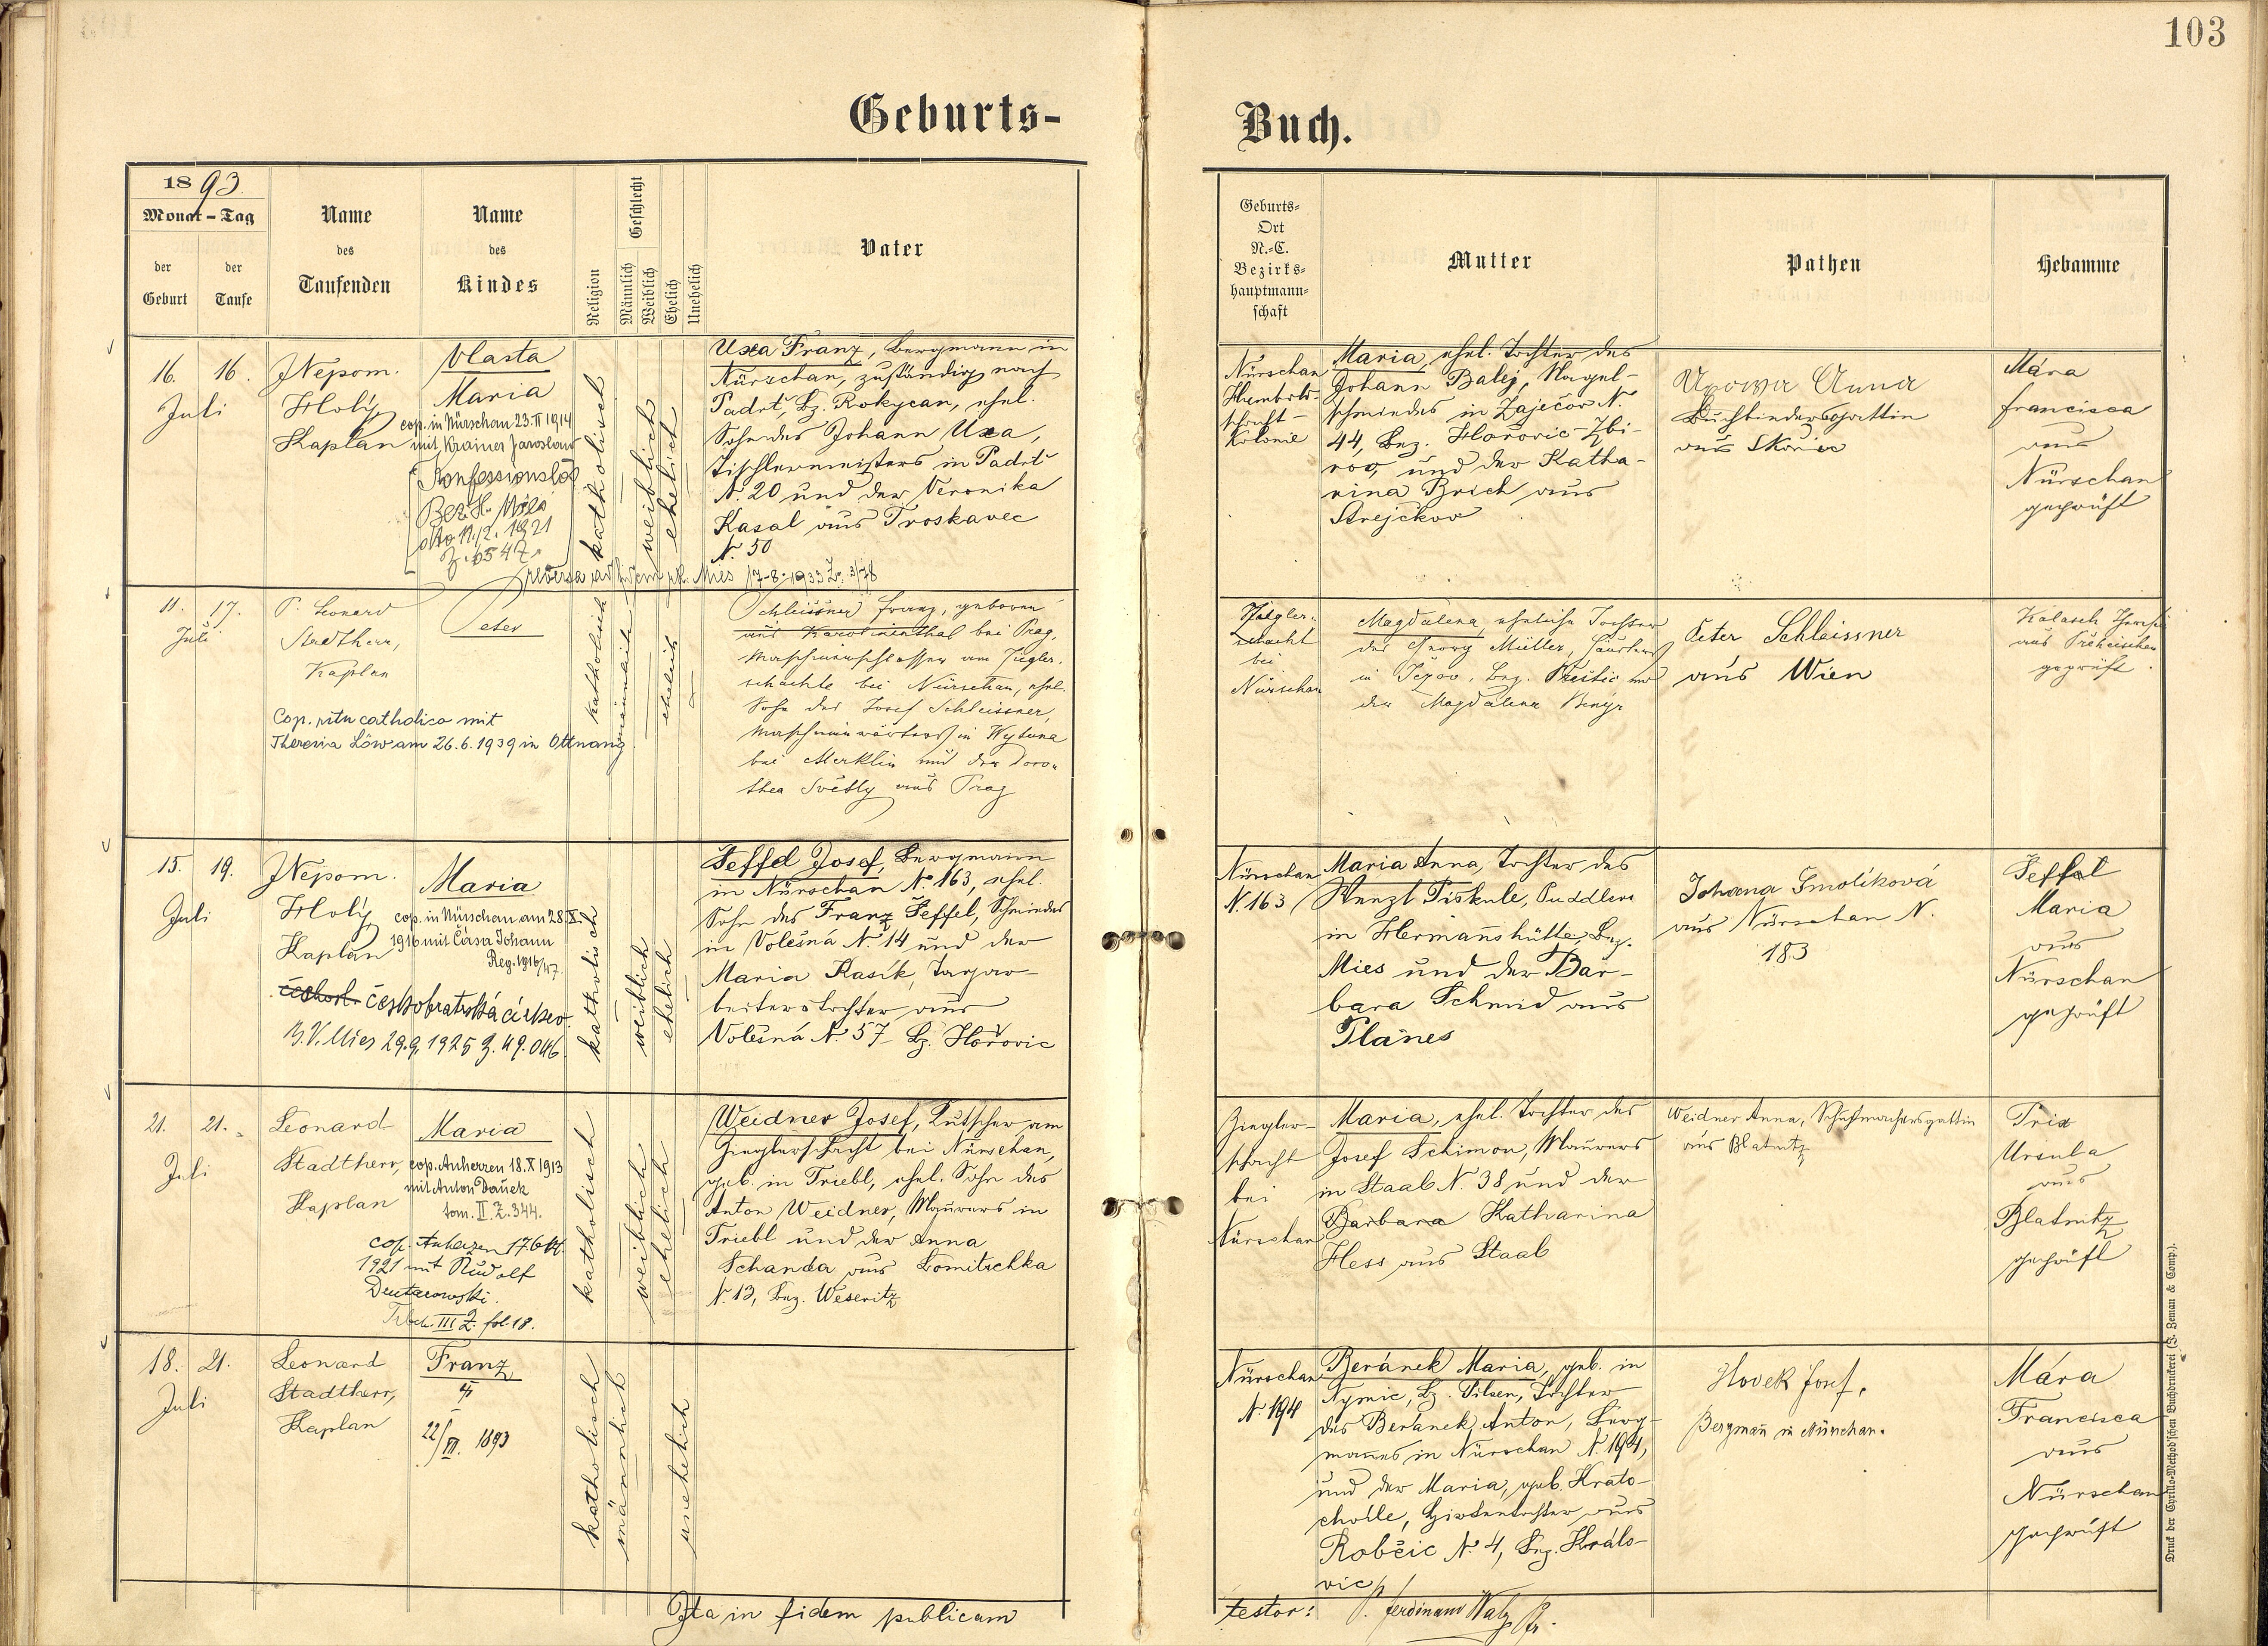 103
Geburts-
Buch.
1893
Monat - Tag
der Geburt
der Taufe
Name des Taufenden
Name des Kindes
Religion
Geschlecht
Männlich
Weiblich
Ehelich
Unehelich
Vater
Geburts-
Ort
N.-C.
Bezirks-
hauptmann-
schaft
Mutter
Pathen
Hebamme
16. 16.
Juli
J Nepom.
Holý
Kaplan
Vlasta
Maria
cop. in Nürschan 23. II 1914
mit Krainer Jaroslaus
Konfessionslos
Bez. H. Mies
dto 11./2. 1921
katholisch
weiblich
ehelich
Uxa Franz, Bergmann in
Nürschan, zuständig nach
Padrť, Bz. Rokycan, ehel.
Sohn des Johann Uxa,
Tischlermeisters in Padrť
N. 20 und der Veronika
Kasal aus Troskavec
N. 50
Nürschan
Humbolts-
schacht-
Kolonie
Maria, ehel. Tochter des
Johann Balej, Nagel-
schmiedes in Zaječov N.
44, Bez. Hořovic-Zbi-
rov, und der Katha-
rina Brich aus
Strejčkov
Anna
Buchbindersgattin
aus
Mára
Francisca
aus
Nürschan
geprüft
Mies 17-8-1933
11. 17.
Juli
P. Leonard
Stadtherr,
Kaplan
Peter
Cop. ritu catholico mit
Theresia Löw am 26.6.1939 in Ottnang
katholisch
ehelich
Schleissner Franz, geboren
aus Karolinenthal bei Prag,
Maschinenschlosser am Ziegler-
schachte bei Nürschan, ehel.
Sohn des Josef Schleissner,
Maschinenwärters in Wytuna
bei Merklin und der Doro-
thea Světly aus Prag
Ziegler-
schacht
bei
Nürschan
Magdalena eheliche Tochter
des Georg Müller,
in Bez. Přestic und
der Magdalena
Peter Schleissner
aus Wien
aus
geprüft
15. 19.
Juli
J Nepom.
Holý
Kaplan
Maria
cop. in Nürschan am 28. X.
1916 mit Čása Johann
Reg. 1916/47.
českobratrská církev.
B.V. Mies 29.9. 1925 Z. 49.046.
katholisch
weiblich
ehelich
Seffel Josef, Bergmann
in Nürschan N. 163, ehel.
Sohn des Franz Seffel, Schmiedes
in Volešná N. 14 und der
Maria Kasík, Tagar-
beiterstochter aus
Volešná N. 57 Bz. Hořovic
Nürschan
N. 163
Maria Anna, Tochter des
Wenzl Piskule, Puddlers
in Hermannshütte, Bez.
Mies und der Bar-
bara Schmid aus
Planes
Johana Smolíková
aus Nürschan N.
183
Seffel
Maria
aus
Nürschan
geprüft
21. 21.
Juli
Leonard
Stadtherr,
Kaplan
Maria
cop. Auherzen 18. X 1913
mit Anton Daněk
tom. II. Z. 344.
cop. Auherzen 17. Okt.
1921 mit Rudolf
III fol. 18.
katholisch
weiblich
ehelich
Weidner Josef, Kutscher am
Zieglerschacht bei Nürschan,
geb. in Triebl, ehel. Sohn des
Anton Weidner, Maurers in
Triebl und der Anna
Schanda aus Lomitschka
N. 13, Bez. Weseritz
Ziegler-
schacht
bei
Nürschan
Maria, ehel. Tochter des
Josef Schimon, Maurers
in Staab N. 38 und der
Barbara Katharina
Hess aus Staab
Weidner Anna, Schuhmachersgattin
aus Blatnitz
Trix
Ursula
aus
Blatnitz
geprüft
18. 21.
Juli
Leonard
Stadtherr,
Kaplan
Franz
katholisch
männlich
unehelich
Nürschan
N. 194
Beránek Maria, geb. in
Nymic, Bz. Pilsen, Tochter
des Beránek Anton, Berg-
mannes in Nürschan N. 194,
und der Maria, geb. Krato-
chvíle, Hirtentochter aus
Robčic N. 4, Bez. Králo-
vic
Hovek Josef,
Bergman in Nürschan.
Mára
Francisca
aus
Nürschan
geprüft
Ita in fidem publicam
testor: P. Ferdinand Walz Pfr.
Druck der Cyrillo-Method'schen Buchdruckerei (J. Zeman & Comp.).